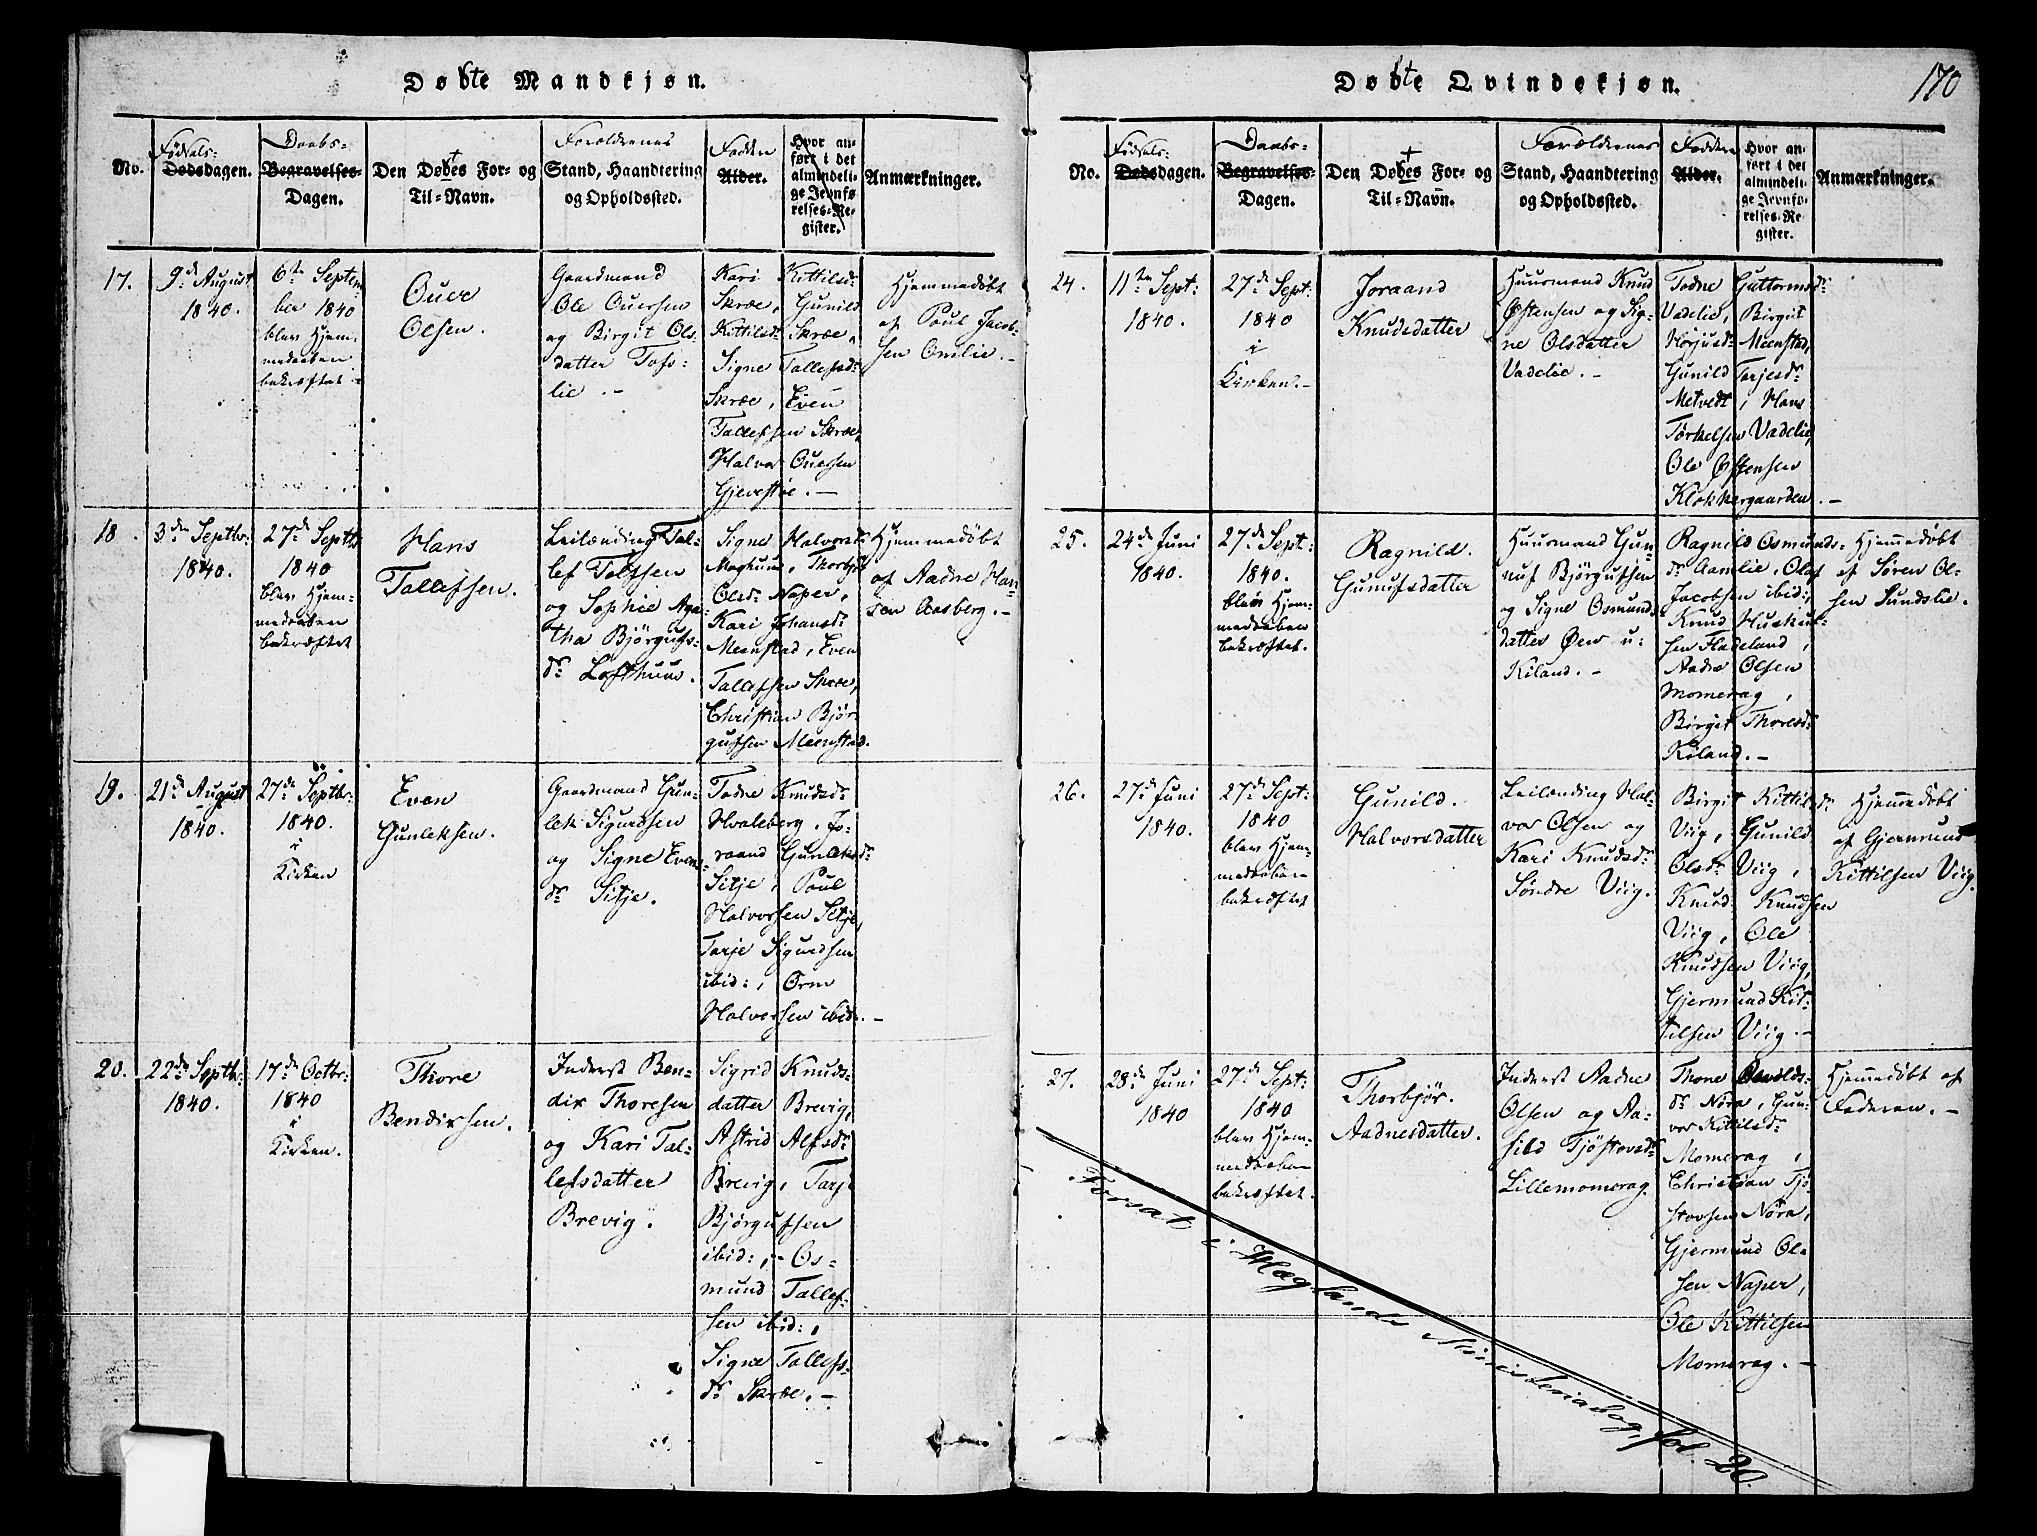 Døbte Mandkjøn.
No.
Fødsels-
Dødsdagen.
Daabs-
Begravelses-
Dagen.
Den Døbtes For- og
Til-Navn.
Forældrenes
Stand, Haandtering
og Opholdssted.
Fadder
Alder.
Hvor an-
ført i det
almindeli-
ge Jevnfø-
relses-Re-
gister.
Anmærkninger.
17.
9de August
1840.
6te Septem-
ber 1840
blev Hjem-
medaaben
bekræftet.
Ouver
Olsen.
Gaardmand
Ole Ouersen
og Birgit Ols-
datter Tofs-
lie.
Kari Kittilsd:
Skræe, Gunild
Kittilsd: Skræe,
Signe Tallefsdr
Skræe, Even
Tallefsen Skræe,
Halvor Ouersen
Gjevestøe.
Hjemmedøbt
af Poul Jacob-
sen Omlie.
18.
3die Septbr:
1840.
27de Septbr
1840
blev Hjem-
medaaben
bekræftet
Hans
Tallefsen.
Leilænding Tal-
lef Tolfsen
og Sophie Aga-
tha Bjørgufs-
dr Lofthuus.
Signe Halvorsd:
Moghuus, Thorbjør
Olsd: Naper,
Kari Johansdr
Meenstad, Even
Tallefsen Skræe,
Christian Bjør-
gufsen Meenstad.
Hjemmedøbt
af Aadne Han-
sen Aasberg.
19.
21de August
1840.
27de Septbr.
1840.
i
Kirken
Even
Gunleksen.
Gaardmand Gun-
lek Sigurdsen
og Signe Evens-
dr Sitje.
Todne Knudsdr
Hvaleberg, Jo-
raand Gunleksdr
Sitje, Poul
Halvorsen Sitje,
Tarje Sigurdsen
ibid:, Orm
Halvorsen ibid:
20.
22de Septbr:
1840.
17de Octbr:
1840
i
Kirken.
Thore
Bendixsen.
Inderst Ben-
dix Thoresen
og Kari Tal-
lefsdatter
Brevig.
Sigrid Knuds-
datter Brevig,
Astrid Alfsdr
Brevig, Tarje
Bjørgufsen
ibid:, Os-
mund Tallef-
sen ibid:,
Signe Tallefs-
dr Skræe.
Døbte Qvindekjøn.
170
No.
Fødsels-
Dødsdagen.
Daabs-
Begravelses-
Dagen.
Den Døbtes For- og
Til-Navn.
Forældrenes
Stand, Haandtering
og Opholdssted.
Faddere
Alder.
Hvor an-
ført i det
almindeli-
ge Jevnfø-
relses-Re-
gister.
Anmærkninger.
24.
11te Sept:
1840.
27de Sept:
1840
i
Kirken.
Joraand
Knudsdatter
Huusmand Knud
Østensen og Sig-
ne Olsdatter
Vadelie.
Todne Guttormsdr
Vadelie, Birgit
Herjusd: Meenstad,
Gunild Tarjesdr
Metvedt, Hans
Tørkelsen Vadelie,
Ole Østensen
Klokkergaarden.
25.
24de Juni
1840.
27de Sept:
1840.
blev Hjem-
medaaben
bekræftet.
Ragnild.
Gunufsdatter
Huusmand Gun-
nuf Bjørgufsen
og Signe Osmunds-
datter Øen u:
Kiland.
Ragnild Osmunds-
dr Aamlie, Olaf
Jacobsen ibid:,
Knud Huskul-
sen Fladeland,
Aadne Olsen
Momerag,
Birgit Thoresdr
Kiland.
Hjemmedøbt
af Søren Ol-
sen Sundslie.
26.
27de Juni
1840.
27de Sept:
1840
blev Hjem-
medaaben
bekræftet
Gunild.
Halvorsdatter
Leilænding Hal-
vor Olsen og
Kari Knudsdr
Søndre Viig.
Birgit Kittilsdr
Viig, Gunild
Olsdr Viig,
Knud Knudsen
Viig, Ole
Knudsen Viig,
Gjermund Kit-
tilsen Viig.
Hjemmedøbt
af Gjermund
Kittilsen Viig.
27.
28de Juni
1840
27de Sept:
1840
blev Hjem-
medaaben
bekræftet.
Thorbjør.
Aadnesdatter.
Inderst Aadne
Olsen og Aa-
sild Tjøstovsdr
Lillemomerag.
Thone Oevolds-
dr Nøra, Gun-
vor Kittilsdr
Momerag,
Christian Tjø-
stovsen Nøra,
Gjermund Ol-
sen Naper,
Ole Kittilsen
Momerag.
Hjemmedøbt af
Faderen.
Forsat i Høglands Ministerialbog, fol. 20.